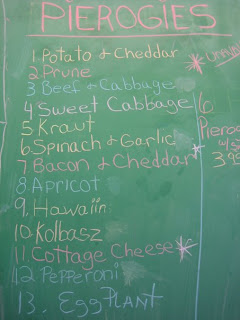 PIEROGIES
1. Potato & Cheddar
2. Prune
3. Beef & Cabbage
4. Sweet Cabbage
5. Kraut
6. Spinach & Garlic
7. Bacon & Cheddar
8. Apricot
9. Hawaiin
10. Kolbasz
11. Cottage Cheese
12. Pepperoni
13. EggPLANT
6
Pierog
3.95